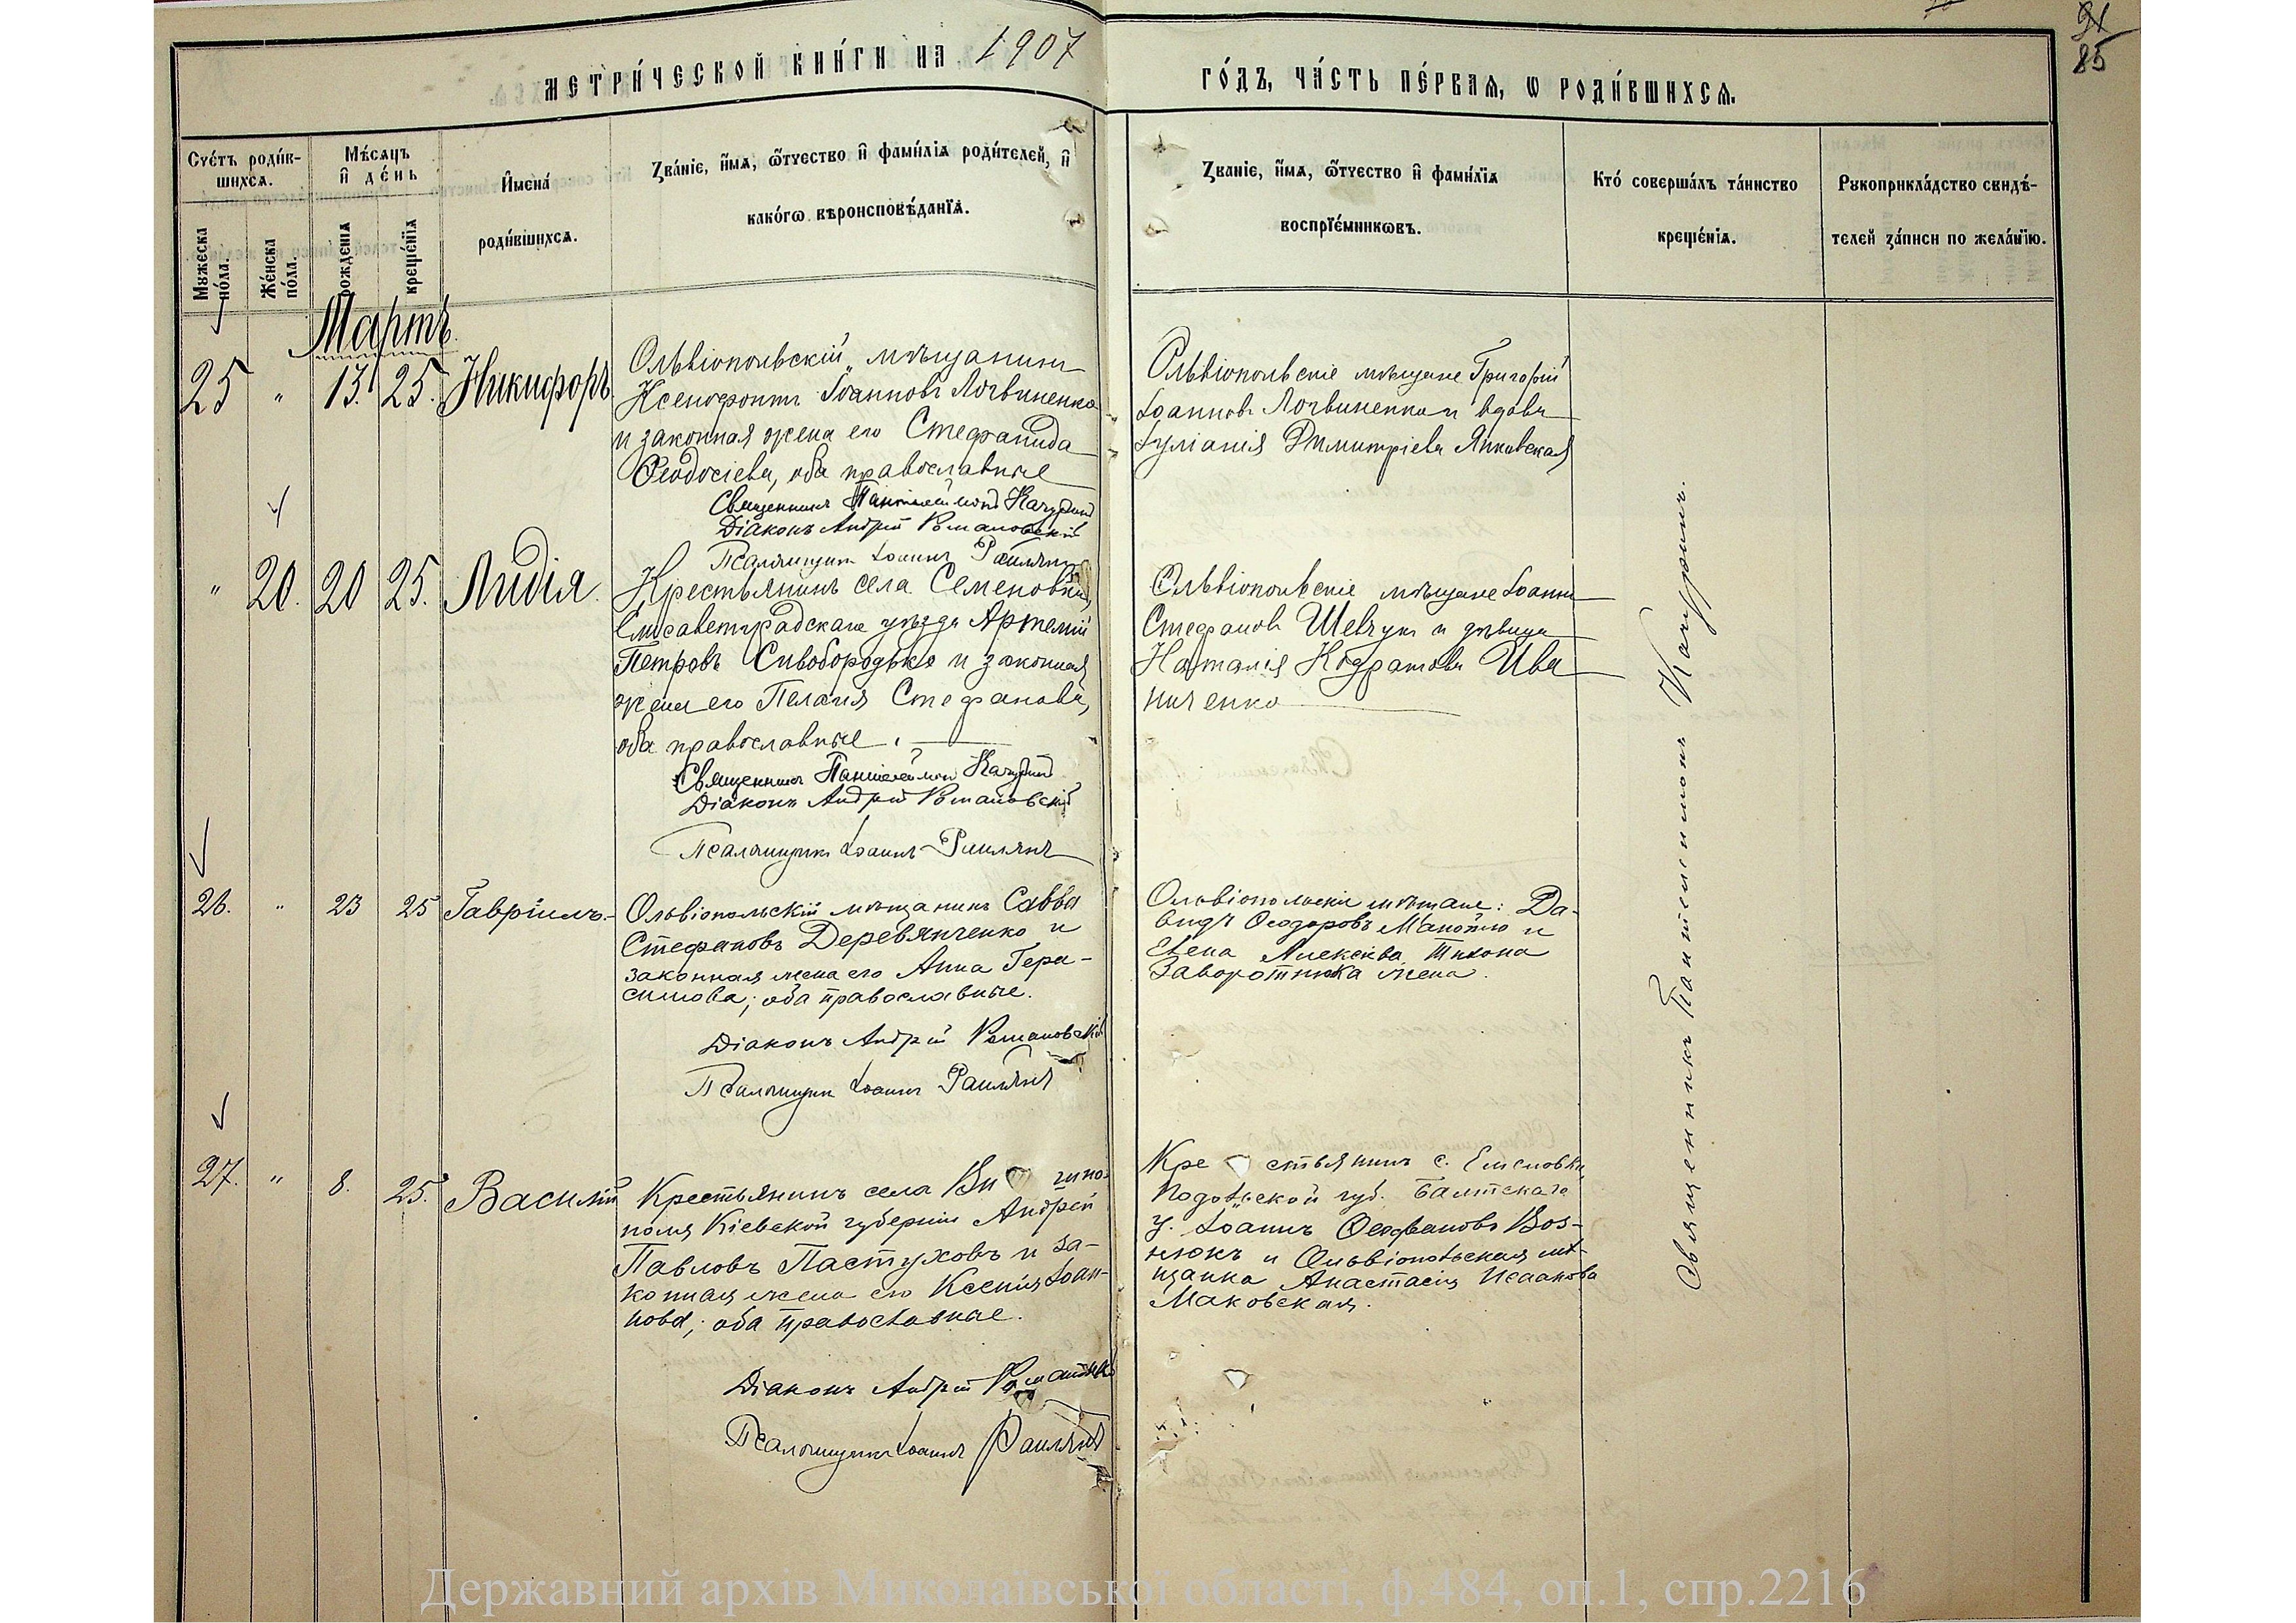 91
85
МЕТРИ́ЧЕСКОЙ КНИ́ГИ НА 1907
ГО́ДЪ, ЧА́СТЬ ПЕ́РВАѦ, Ѡ РОДИ́ВШИХСѦ.
Сче́тъ роди́в-
шихсѧ.
Мꙋ́жеска
по́ла.
Же́нска
по́ла.
Мѣ́сѧцъ
и҆ де́нь
рожде́нїѧ
креще́нїѧ
И҆мена̀
роди́вшихсѧ.
Зва́нїе, и҆́мѧ, ѻ҆́тчество и҆ фами́лїѧ роди́телей, и҆
како́гѡ вѣроисповѣ́данїѧ.
Зва́нїе, и҆́мѧ, ѻ҆́тчество и҆ фами́лїѧ
воспрїе́мникѡвъ.
Кто̀ соверша́лъ та́инство
креще́нїѧ.
Рꙋкоприкла́дство свидѣ́-
телей за́писи по жела́нїю.
Мартъ.
25 " 13. 25. Никифоръ
Ольвіопольскій мѣщанинъ
Ксенофонтъ Іоанновъ Логвиненко
и законная жена его Стефанида
Ѳеодосіева, оба православные
Священникъ Пантелеймонъ Качуринъ
Діаконъ Андрей Романовскій
Псаломщикъ Іоаннъ
Ольвіопольскіе мѣщане Григорій
Іоанновъ Логвиненко и вдова
Іуліанія Димитріева Янковская
" 20. 20 25. Лидія.
Крестьянинъ села Семеновки,
Елисаветградскаго уѣзда Артемій
Петровъ Сивобородько и законная
жена его Пелагія Стефанова,
оба православные.
Священникъ Пантелеймонъ Качуринъ
Діаконъ Андрей Романовскій
Псаломщикъ Іоаннъ
Ольвіопольскіе мѣщане Іоаннъ
Стефановъ Шевчукъ и дѣвица
Наталія Кодратова Ива
ниченко
26. " 23 25 Гавріилъ.
Ольвіопольскій мѣщанинъ Савва
Стефановъ Деревянченко и
законная жена его Анна Гера-
симова; оба православные.
Діаконъ Андрей Романовскій
Псаломщикъ Іоаннъ
Ольвіопольскіе мѣщане: Да-
видъ Ѳеодоровъ и
Елена Алексѣева Тихона
Заворотнюка жена.
27. " 8. 25. Василій
Крестьянинъ села
поля Кіевской губерніи Андрей
Павловъ Пастуховъ и за-
конная жена его Ксенія Іоан-
нова; оба православные.
Діаконъ Андрей
Псаломщикъ Іоаннъ
Крестьянинъ с.
Подольской губ. Балтскаго
у. Іоаннъ Ѳеофановъ Воз-
нюкъ и Ольвіопольская мѣ-
щанка Анастасія Исаакова
Маковская.
Священникъ Пантелеимонъ Качуринъ.
Державний архів Миколаївської області, ф.484, оп.1, спр.2216